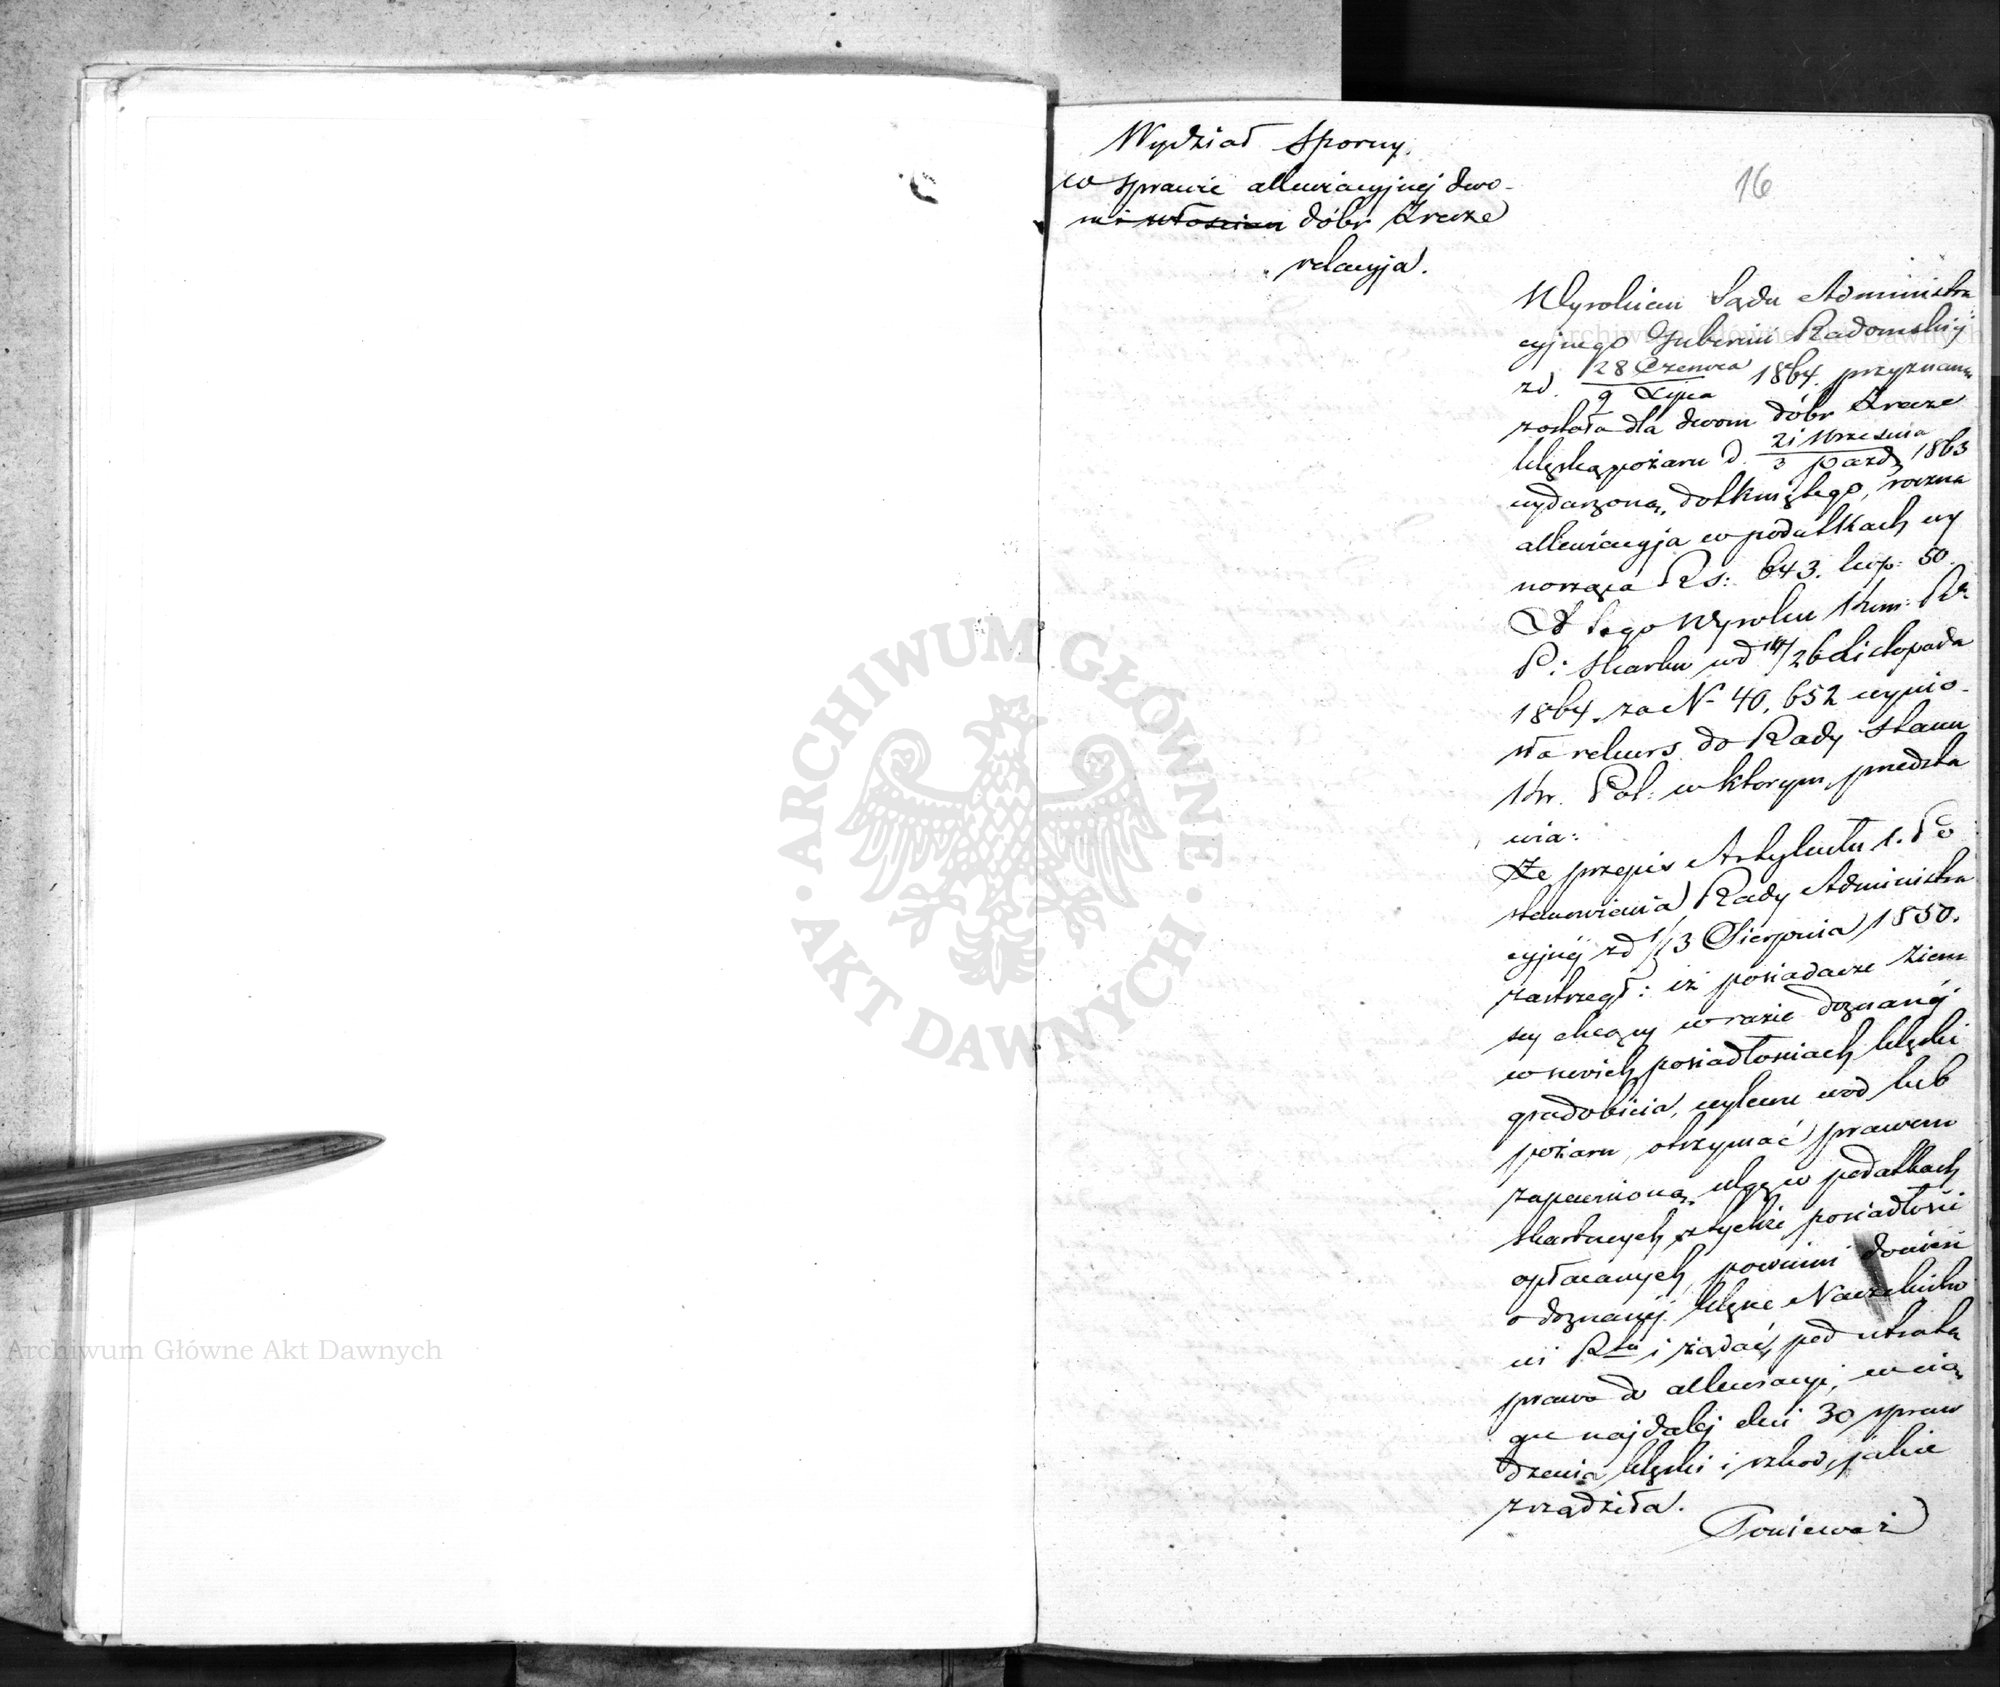 Wydział Sporny.
w sprawie allewiacyjnej dwo-
ru i włościan dóbr Zrecze
relacyja.
16
Wyrokiem Sądu Administra
cyjnego Gubernii Radomskiej
z d. 28 Czerwca / 9 Lipca 1864. przyznana
została dla dworu dóbr Zrecze
klęską pożaru d. 21 Września / 3 Paźdz 1863
wydarzoną, dotkniętego, roczna
allewiacyja w podatkach wy
nosząca Rs: 643. kop: 50.
Od tego Wyroku Kom: Rz
P: Skarbu pod 14/26 Listopada
1864. za N- 40,652 wynio-
sła rekurs do Rady Stanu
Kr. Pol: w którym przedsta
wia:
Że przepis Artykułu 1. Po
stanowienia Rady Administra
cyjnej z d 1/13 Sierpnia 1850.
zastrzegł: iż posiadacze ziem
scy chcący w razie doznanej
w swoich posiadłościach klęski
gradobicia, wylewu wód lub
pożaru, otrzymać prawem
zapewnioną ulgę w podatkach
skarbowych z tychże posiadłości
opłacanych, powinni donieść
o doznanej klęsce Naczelniko
wi Ptu i żądać, pod utratą
prawa do allewiacyi, w cią
gu najdalej dni 30 spraw
dzenia klęski i szkod, jakie
zrządziła.
Ponieważ
Archiwum Główne Akt Dawnych
ARCHIWUM GŁÓWNE
AKT DAWNYCH
Archiwum Główne Akt Dawnych